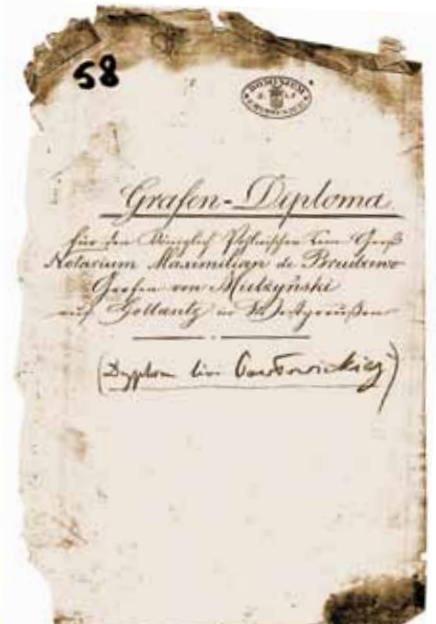 58
DOMINIUM
Grafen-Diploma
für den Königlich Pohlnischen Cron Groß
Notarium Maximilian de Brudzewo
Grafen von Mielzyński
auf Gollantz in Westpreußen
(Dyplom linii Pawłowickiej)